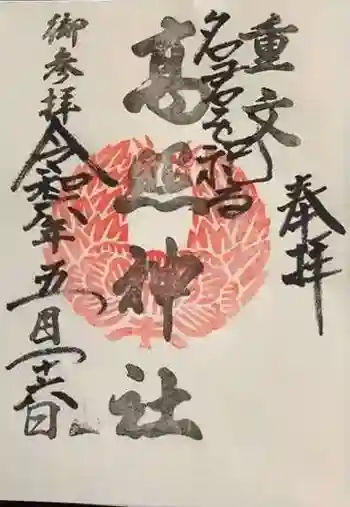 奉拝
重文
名君を祀る
高照神社
御参拝
令和六年五月十六日